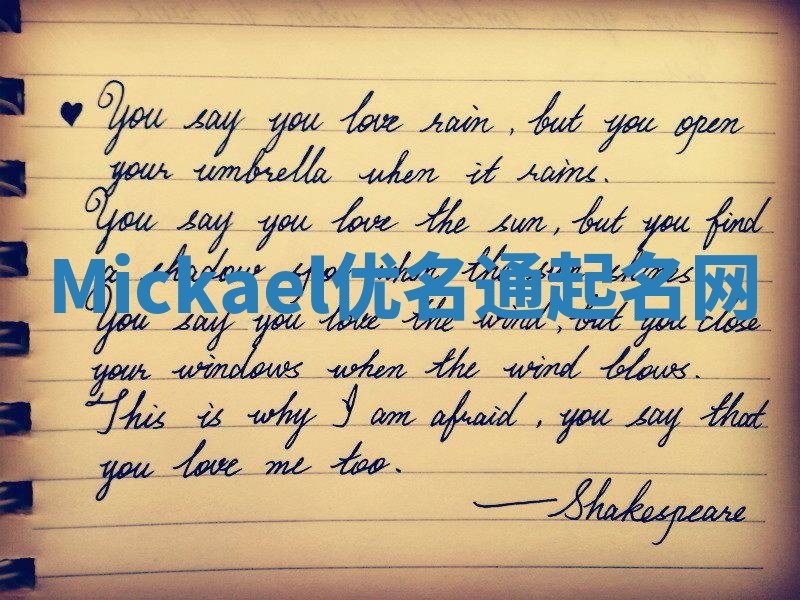 ♥ You say you love rain, but you open
your umbrella when it rains.
You say you love the sun, but you find
a shadow spot when the sun shines
Mickael优名通起名网
You say you love the wind, but you close
your windows when the wind blows.
This is why I am afraid, you say that
you love me too.
— Shakespeare